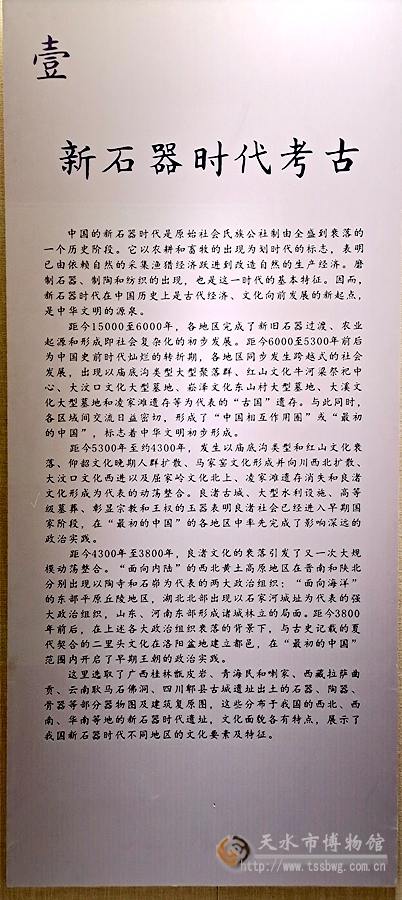 壹
新石器时代考古
中国的新石器时代是原始社会氏族公社制由全盛到衰落的
一个历史阶段。它以农耕和畜牧的出现为划时代的标志，表明
已由依赖自然的采集渔猎经济跃进到改造自然的生产经济。磨
制石器、制陶和纺织的出现，也是这一时代的基本特征。因而，
新石器时代在中国历史上是古代经济、文化向前发展的新起点，
是中华文明的源泉。
距今15000至6000年，各地区完成了新旧石器过渡、农业
起源和形成即社会复杂化的初步发展。距今6000至5300年前后
为中国史前时代灿烂的转折期，各地区同步发生跨越式的社会
发展，出现以庙底沟类型大型聚落群、红山文化牛河梁祭祀中
心、大汶口文化大型墓地、崧泽文化东山村大型墓地、大溪文
化大型墓地和凌家滩遗存等为代表的“古国”遗存。与此同时，
各区域间交流日益密切，形成了“中国相互作用圈”或“最初
的中国”，标志着中华文明初步形成。
距今5300年至约4300年，发生以庙底沟类型和红山文化衰
落、仰韶文化晚期人群扩散、马家窑文化形成并向川西北扩散、
大汶口文化西进以及屈家岭文化北上、凌家滩遗存消失和良渚
文化形成为代表的动荡整合。良渚古城、大型水利设施、高等
级墓葬、彰显宗教和王权的玉器表明良渚社会已经进入早期国
家阶段，在“最初的中国”的各地区中率先完成了影响深远的
政治实践。
距今4300年至3800年，良渚文化的衰落引发了又一次大规
模动荡整合。“面向内陆”的西北黄土高原地区在晋南和陕北
分别出现以陶寺和石峁为代表的两大政治组织；“面向海洋”
的东部平原丘陵地区，湖北北部出现以石家河城址为代表的强
大政治组织，山东、河南东部形成诸城林立的局面。距今3800
年前后，在上述各大政治组织衰落的背景下，与古史记载的夏
代契合的二里头文化在洛阳盆地建立都邑，在“最初的中国”
范围内开启了早期王朝的政治实践。
这里选取了广西桂林甑皮岩、青海民和喇家、西藏拉萨曲
贡、云南耿马石佛洞、四川郫县古城遗址出土的石器、陶器、
骨器等部分器物图及建筑复原图，这些分布于我国的西北、西
南、华南等地的新石器时代遗址，文化面貌各有特点，展示了
我国新石器时代不同地区的文化要素及特征。
天水市博物馆
http://www.tssbwg.com.cn